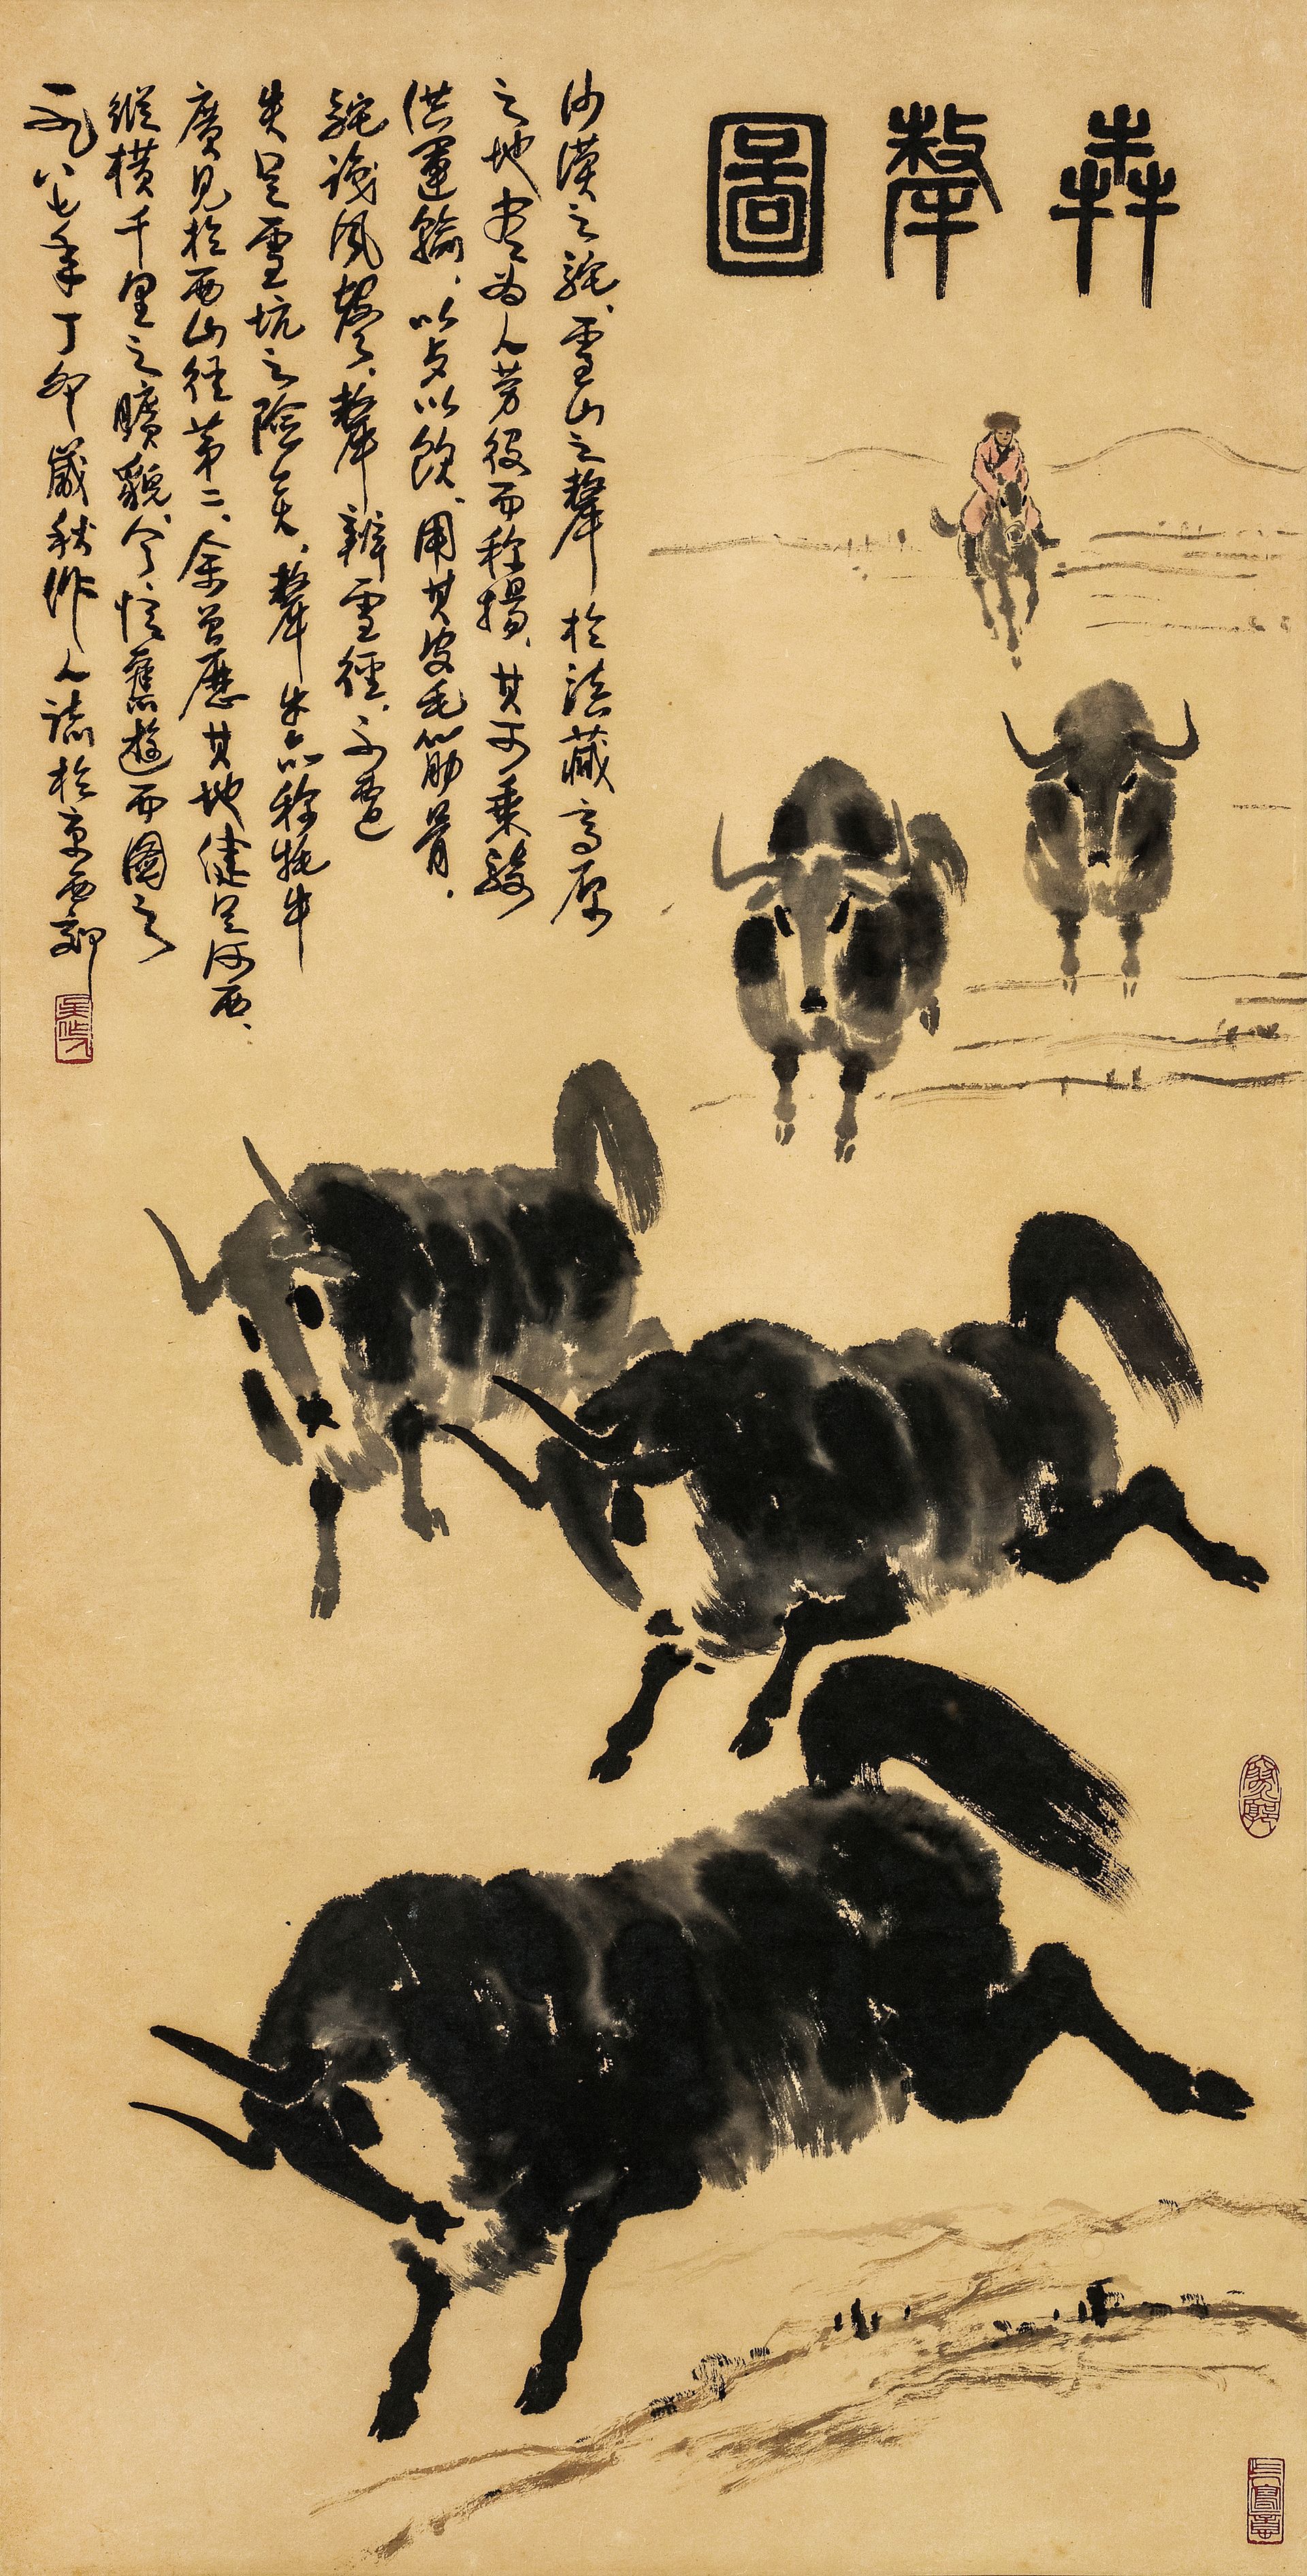 犇犛圖
沙漠之駝、雪山之犛於藏高原
之地為人勞役而称揚、其可乘
供運輸、以飲、用其皮毛筋骨、
駝識風聲、犛辨雪徑、不遭
失足雪坑之險矣、犛牛亦称牦牛
廣見於西山經第二、余曾歷其地健足河西、
縱橫千里之曠貌、今憶舊遊而圖之
一九八七年丁卯歲秋作人誌於京西郊
吳作人